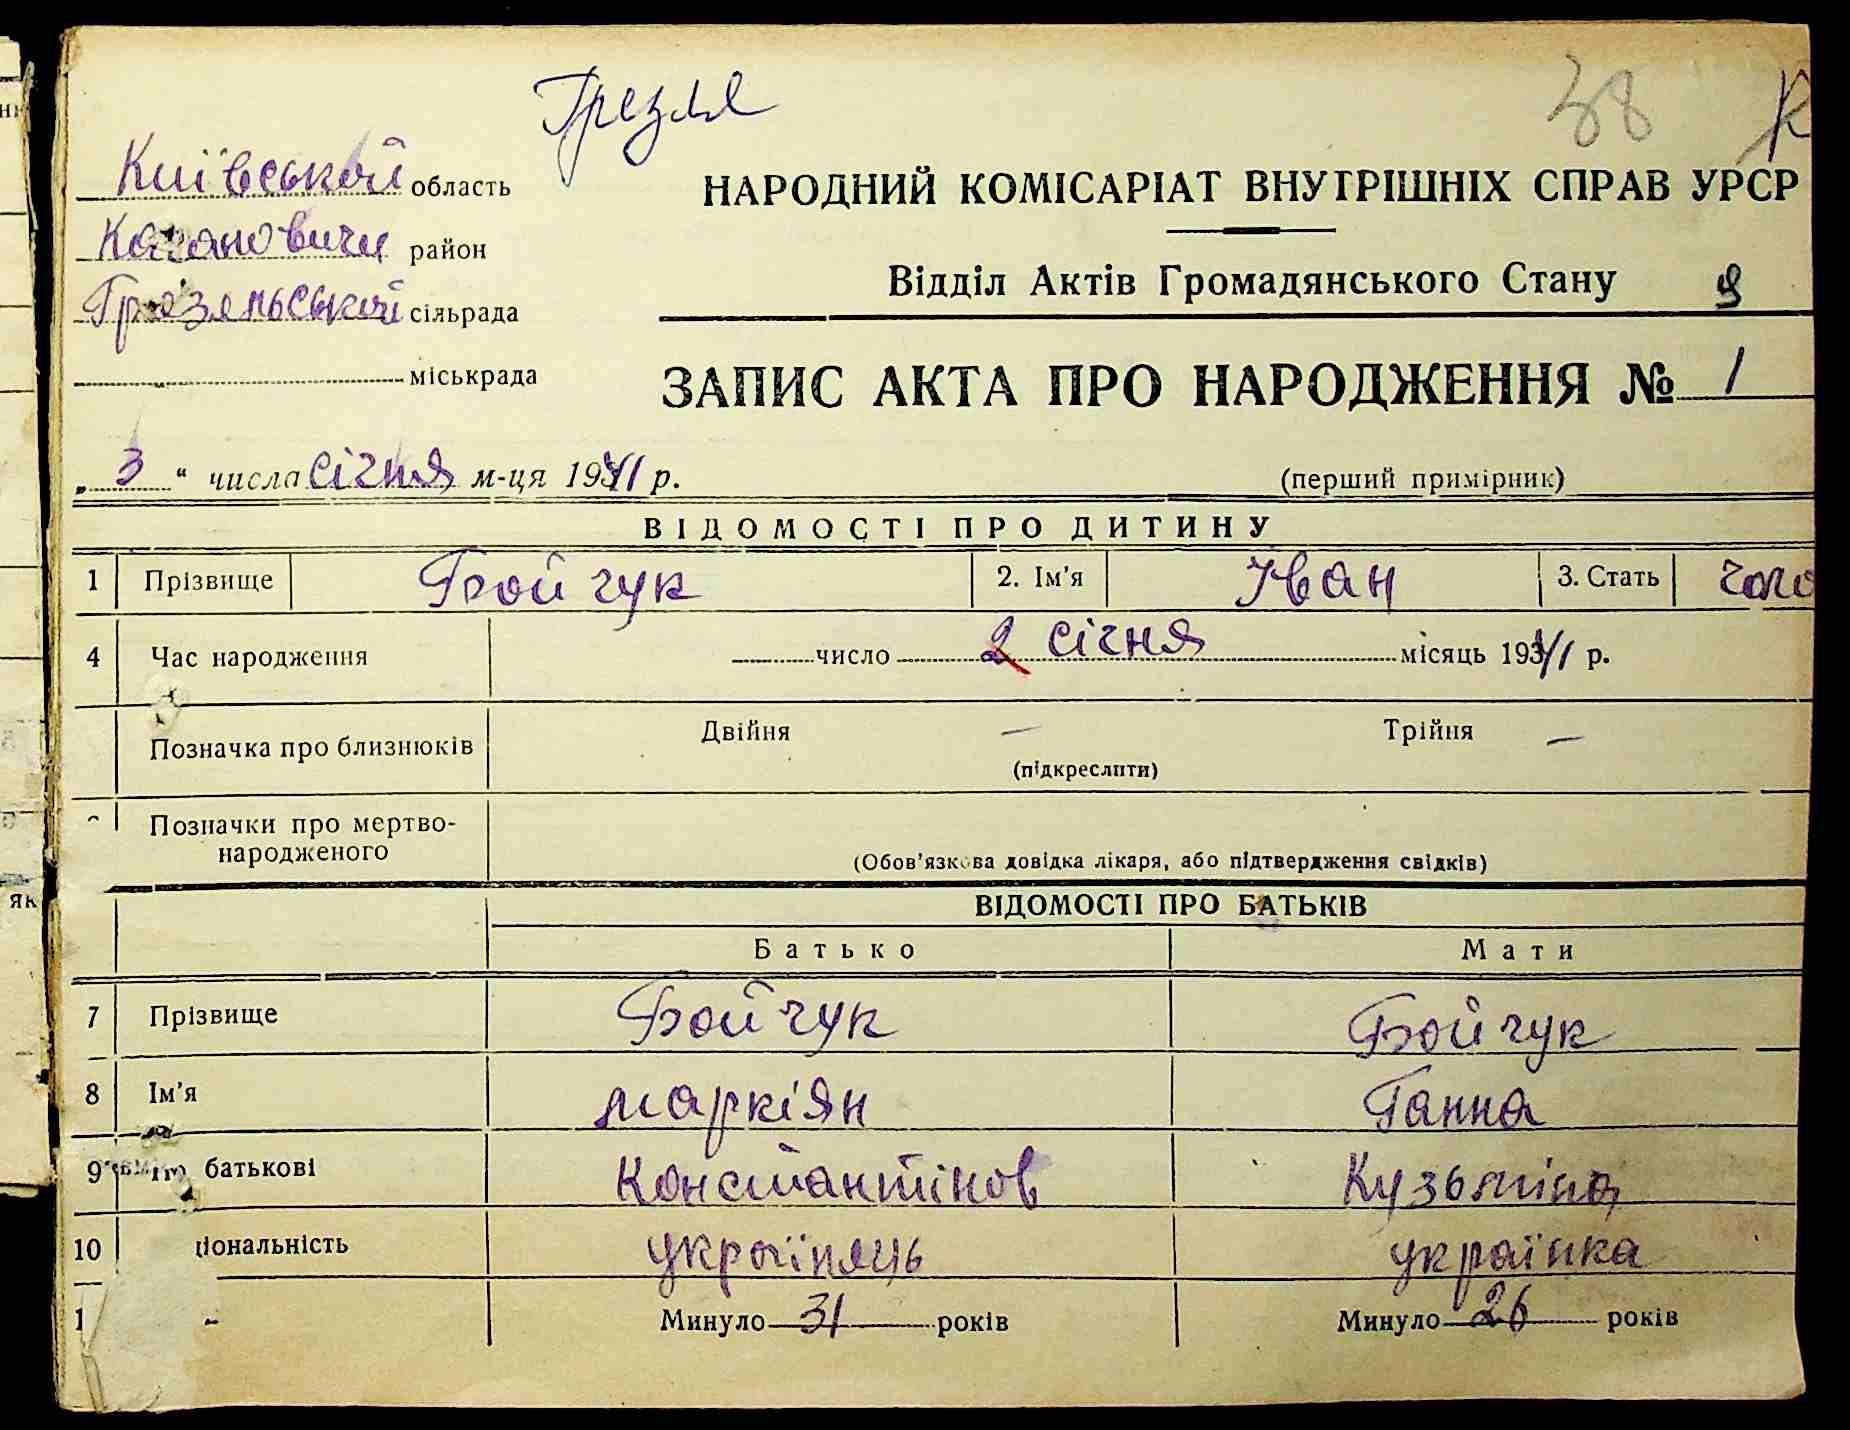 Грезля
38
Київській область
Кагановичи район
Грезенській сільрада
міськрада
НАРОДНИЙ КОМІСАРІАТ ВНУТРІШНІХ СПРАВ УРСР
Відділ Актів Громадянського Стану 9
ЗАПИС АКТА ПРО НАРОДЖЕННЯ № 1
„ 3 “ числа січня м-ця 1941 р. (перший примірник)
ВІДОМОСТІ ПРО ДИТИНУ
1 Прізвище Бойчук 2. Ім’я Іван 3. Стать чоло
4 Час народження число 2 січня місяць 1941 р.
Позначка про близнюків Двійня — Трійня —
(підкреслити)
Позначки про мертво-
народженого
(Обов’язкова довідка лікаря, або підтвердження свідків)
ВІДОМОСТІ ПРО БАТЬКІВ
Батько Мати
7 Прізвище Бойчук Бойчук
8 Ім’я Маркіян Ганна
9 батькові Константінов Кузьміна
10 ціональність українець українка
1 Минуло 31 років Минуло 26 років
як